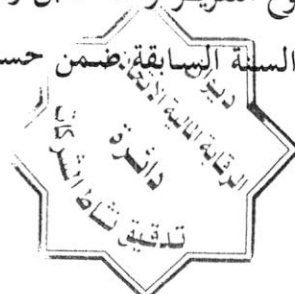 السنة السابقة ضمن
ديوان
الرقابة المالية الاتحادي
دائرة
تدقيق نشاط الشركات